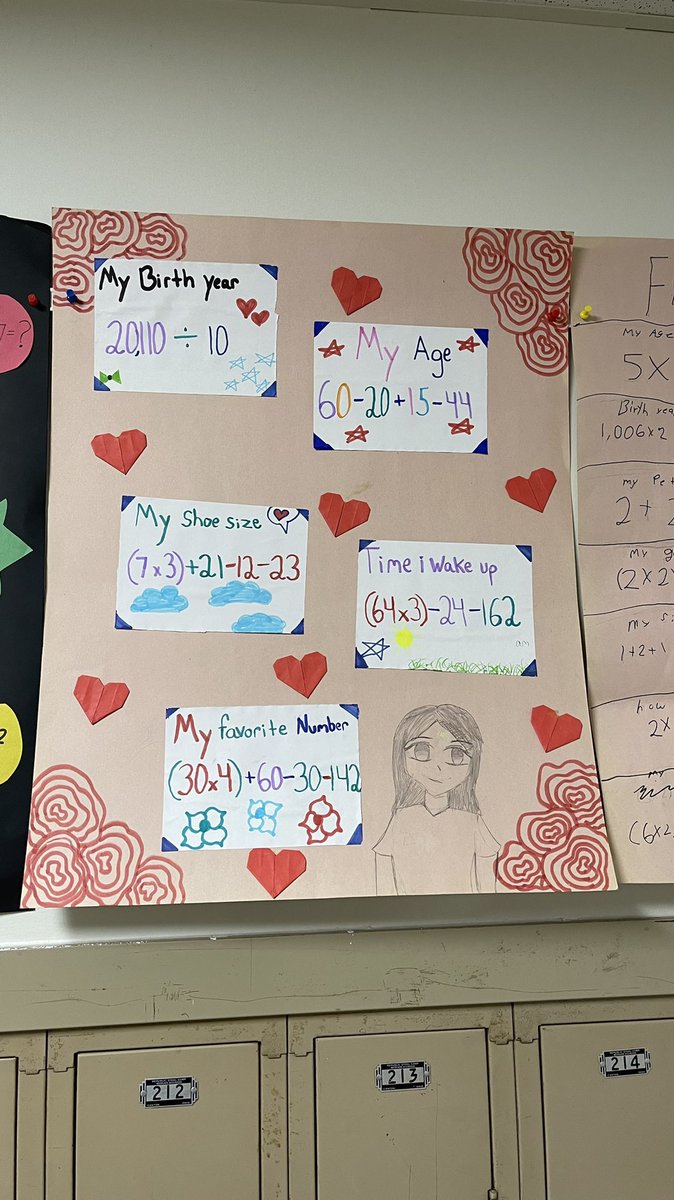 7=?
?
My Birth year
20,110 ÷ 10
My Age
60-20+15-44
My Shoe size
(7x3)+21-12-23
Time i wake up
(64x3)-24-162
am
My favorite Number
(30x4)+60-30-142
My Age
5X
Birth yea
1,006x2
my Pet
2+ 2
my
(2x2
my si
1+2+1
how
2x
my
(6x2
212
213
214